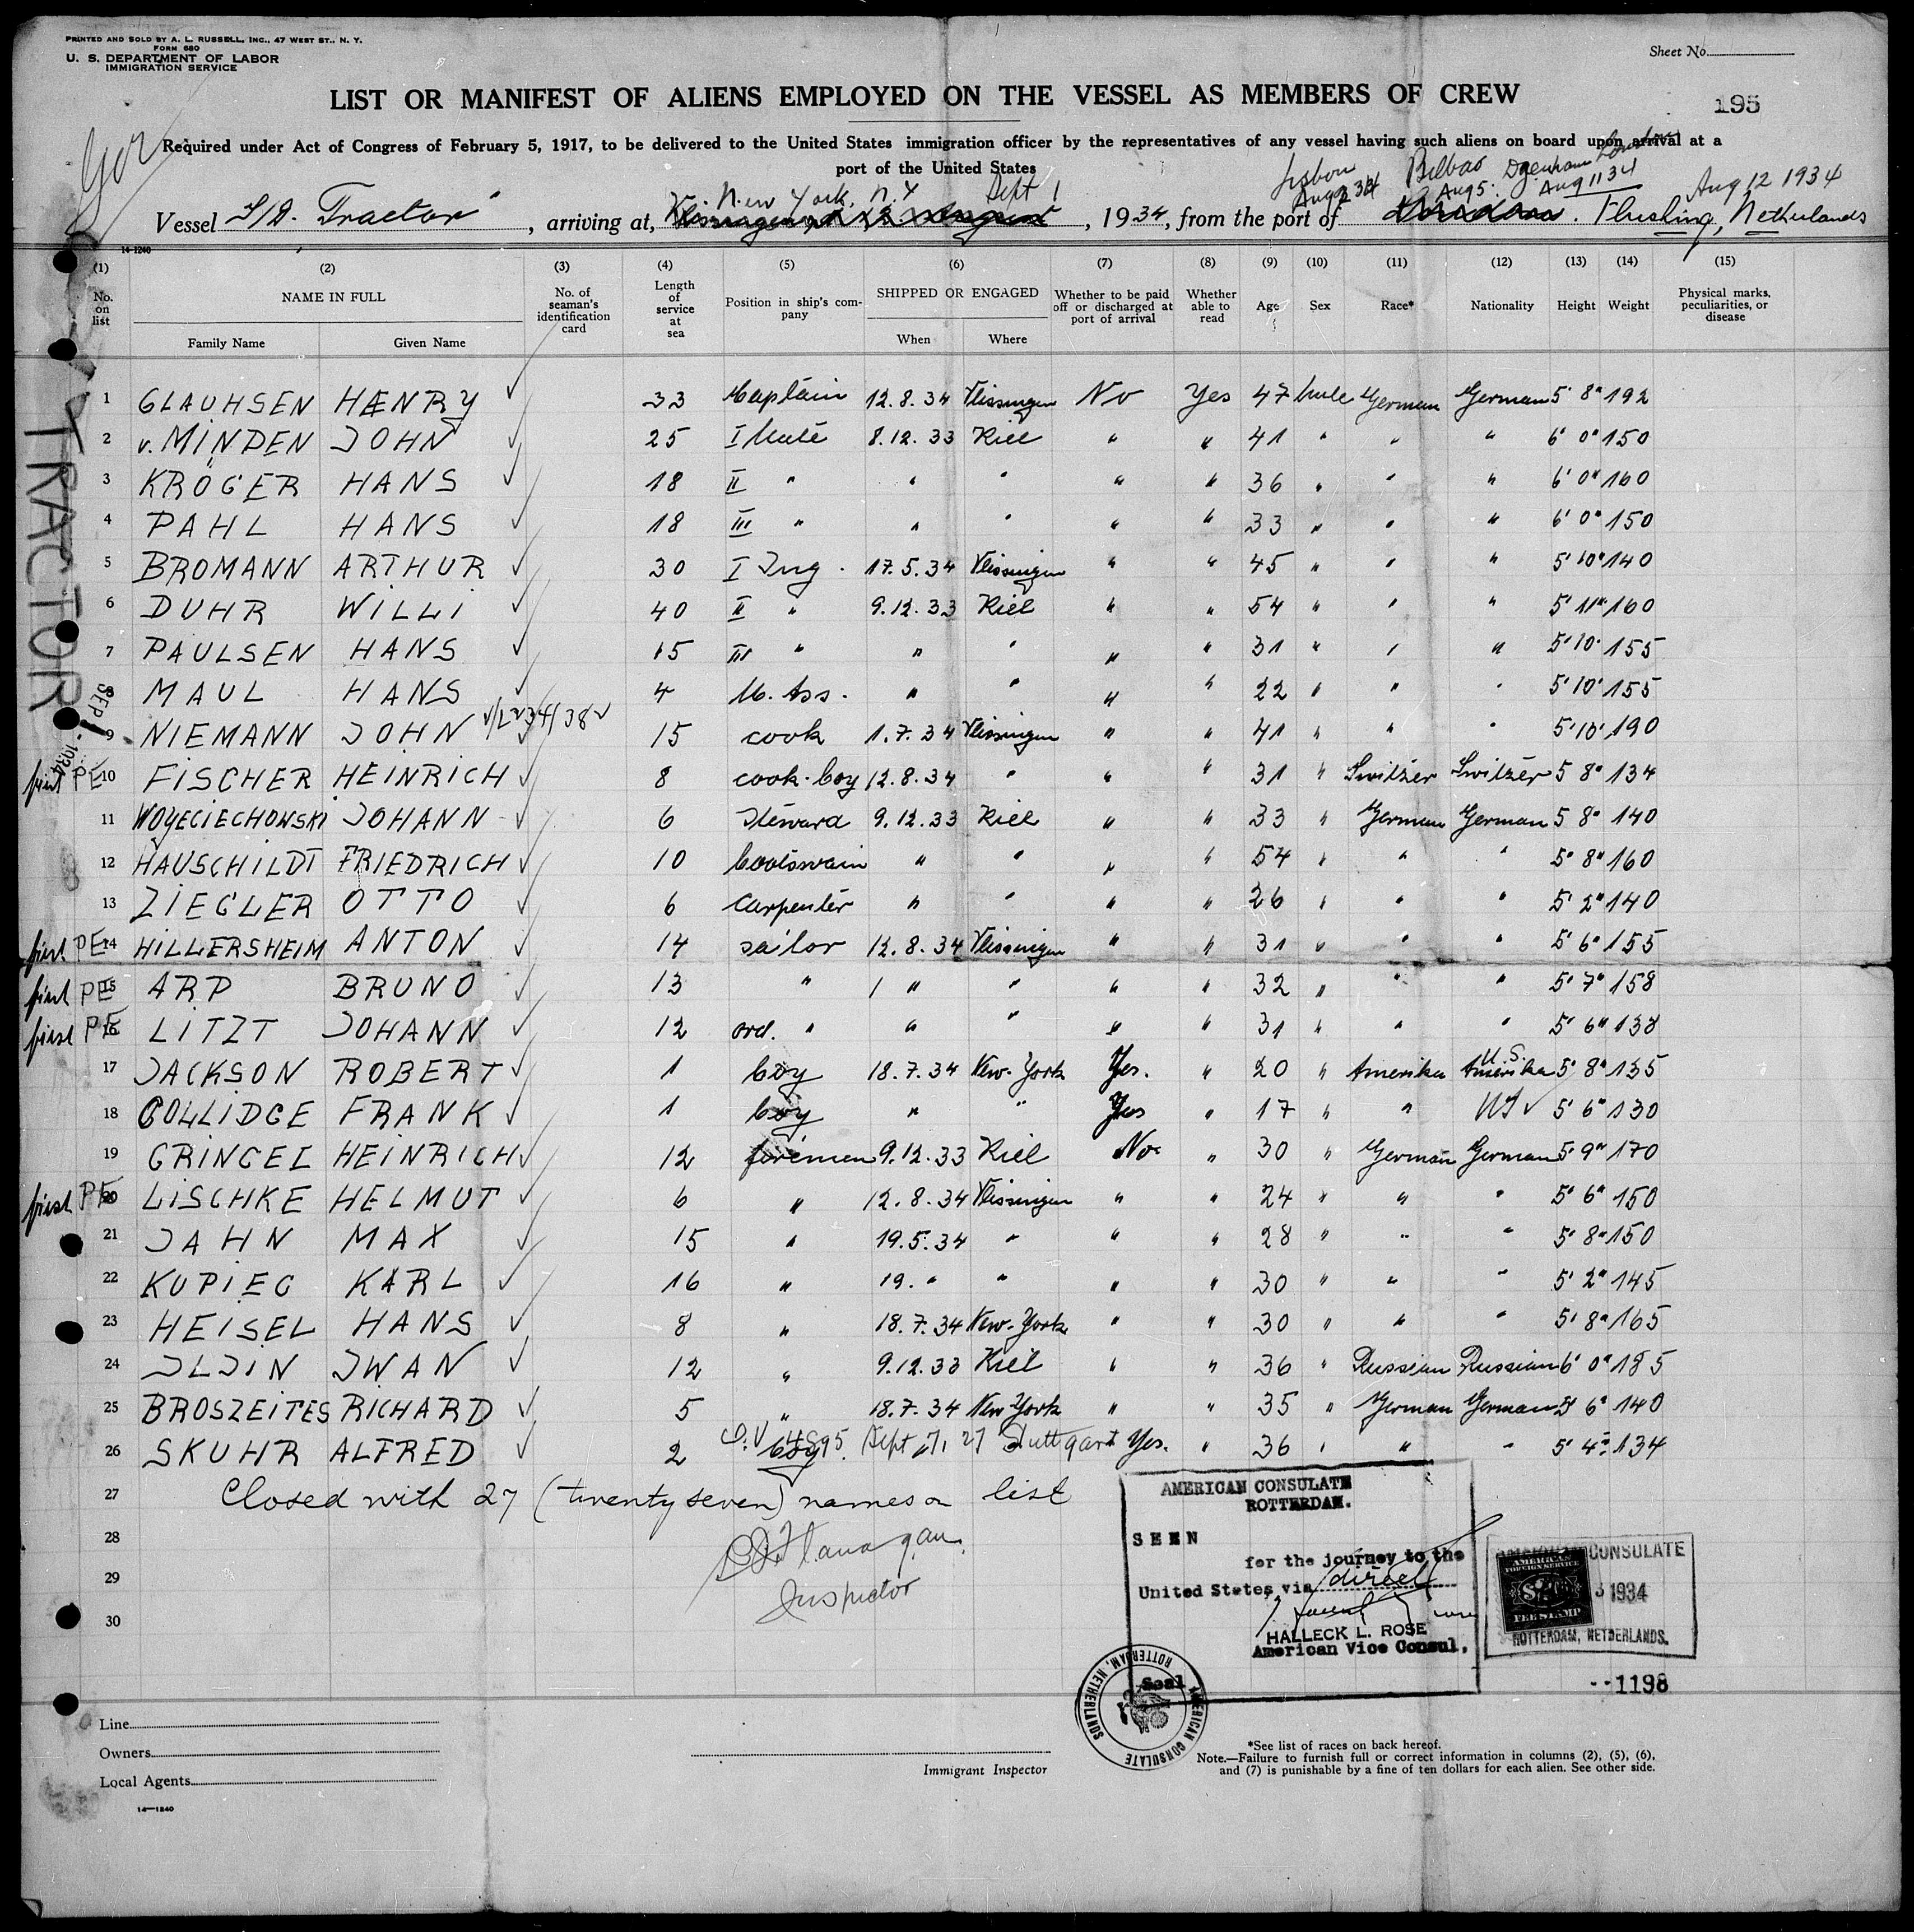 PRINTED AND SOLD BY A. L. RUSSELL, INC., 47 WEST ST., N. Y.
FORM 680
U. S. DEPARTMENT OF LABOR
IMMIGRATION SERVICE
Sheet No.
LIST OR MANIFEST OF ALIENS EMPLOYED ON THE VESSEL AS MEMBERS OF CREW
195
Required under Act of Congress of February 5, 1917, to be delivered to the United States immigration officer by the representatives of any vessel having such aliens on board upon arrival at a
port of the United States
Lisbon Bilbao Dagenham London
Aug 2 34 Aug 5. Aug 11 34 Aug 12 1934
New York, N.Y Sept 1
Vessel S/D. Tractor , arriving at, , 1934, from the port of Flushing, Netherlands
14-1240
(1) (2) (3) (4) (5) (6) (7) (8) (9) (10) (11) (12) (13) (14) (15)
No. on list NAME IN FULL No. of seaman's identification card Length of service at sea Position in ship's company SHIPPED OR ENGAGED Whether to be paid off or discharged at port of arrival Whether able to read Age Sex Race* Nationality Height Weight Physical marks, peculiarities, or disease
Family Name Given Name When Where
TRACTOR
SEP 1 - 1934
1 CLAUHSEN HÆNRY ✓ 33 Captain 12.8.34 Vlissingen No Yes 47 male German German 5' 8" 192
2 v. MINDEN JOHN ✓ 25 I Mate 8.12.33 Kiel " " 41 " " " 6' 0" 150
3 KRÖGER HANS ✓ 18 II " " " " " 36 " " " 6' 0" 160
4 PAHL HANS ✓ 18 III " " " " " 33 " " " 6' 0" 150
5 BROMANN ARTHUR ✓ 30 I Ing. 17.5.34 Vlissingen " " 45 " " " 5' 10" 140
6 DUHR WILLI ✓ 40 II " 9.12.33 Kiel " " 54 " " " 5' 11" 160
7 PAULSEN HANS ✓ 15 III " " " " " 31 " " " 5' 10" 155
8 MAUL HANS ✓ 4 M. Ass. " " " " 22 " " " 5' 10" 155
9 NIEMANN JOHN 15 cook 1.7.34 Vlissingen " " 41 " " " 5' 10" 190
first PE 10 FISCHER HEINRICH ✓ 8 cook-boy 12.8.34 " " " 31 " Switzer Switzer 5 8" 134
11 WOYECIECHOWSKI JOHANN ✓ 6 Steward 9.12.33 Kiel " " 33 " German German 5 8" 140
12 HAUSCHILDT FRIEDRICH ✓ 10 bootswain " " " " 54 " " " 5' 8" 160
13 ZIEGLER OTTO ✓ 6 Carpenter " " " " 26 " " " 5' 2" 140
first PE 14 HILLERSHEIM ANTON ✓ 14 sailor 12.8.34 Vlissingen " " 31 " " " 5' 6" 155
first PE 15 ARP BRUNO ✓ 13 " " " " " 32 " " " 5' 7" 158
first PE 16 LITZT JOHANN ✓ 12 ord. " " " " " 31 " " " 5' 6" 138
17 JACKSON ROBERT ✓ 1 boy 18.7.34 New-York Yes. " 20 " Amerika U.S. Amerika 5' 8" 135
18 COLLIDGE FRANK ✓ 1 boy " " Yes " 17 " " US ✓ 5' 6" 130
19 GRINGEL HEINRICH ✓ 12 foremen 9.12.33 Kiel No " 30 " German German 5' 9" 170
first PE 20 LISCHKE HELMUT ✓ 6 " 12.8.34 Vlissingen " " 24 " " " 5' 6" 150
21 JAHN MAX ✓ 15 " 19.5.34 " " " 28 " " " 5' 8" 150
22 KUPIEC KARL ✓ 16 " 19. " " " " 30 " " " 5' 2" 145
23 HEISEL HANS ✓ 8 " 18.7.34 New-York " " 30 " " " 5' 8" 165
24 ILJIN IWAN ✓ 12 " 9.12.33 Kiel " " 36 " Russian Russian 6' 0" 185
25 BROSZEITES RICHARD ✓ 5 " 18.7.34 New York " " 35 " German German 5' 6" 140
26 SKUHR ALFRED ✓ 2 boy Sept 7, 27 Stuttgart Yes. " 36 " " " 5' 4" 134
27 Closed with 27 (twenty seven) names on list
28 Flanagan
29 Inspector
30
AMERICAN CONSULATE
ROTTERDAM.
SEEN
for the journey to the
United States via direct
HALLECK L. ROSE
American Vice Consul.
Seal
AMERICAN CONSULATE ROTTERDAM, NETHERLANDS
CONSULATE
AMERICAN
FOREIGN SERVICE
FEE STAMP
1934
ROTTERDAM, NETHERLANDS.
--1198
Line
Owners
Local Agents
14-1240
Immigrant Inspector
*See list of races on back hereof.
Note.—Failure to furnish full or correct information in columns (2), (5), (6),
and (7) is punishable by a fine of ten dollars for each alien. See other side.